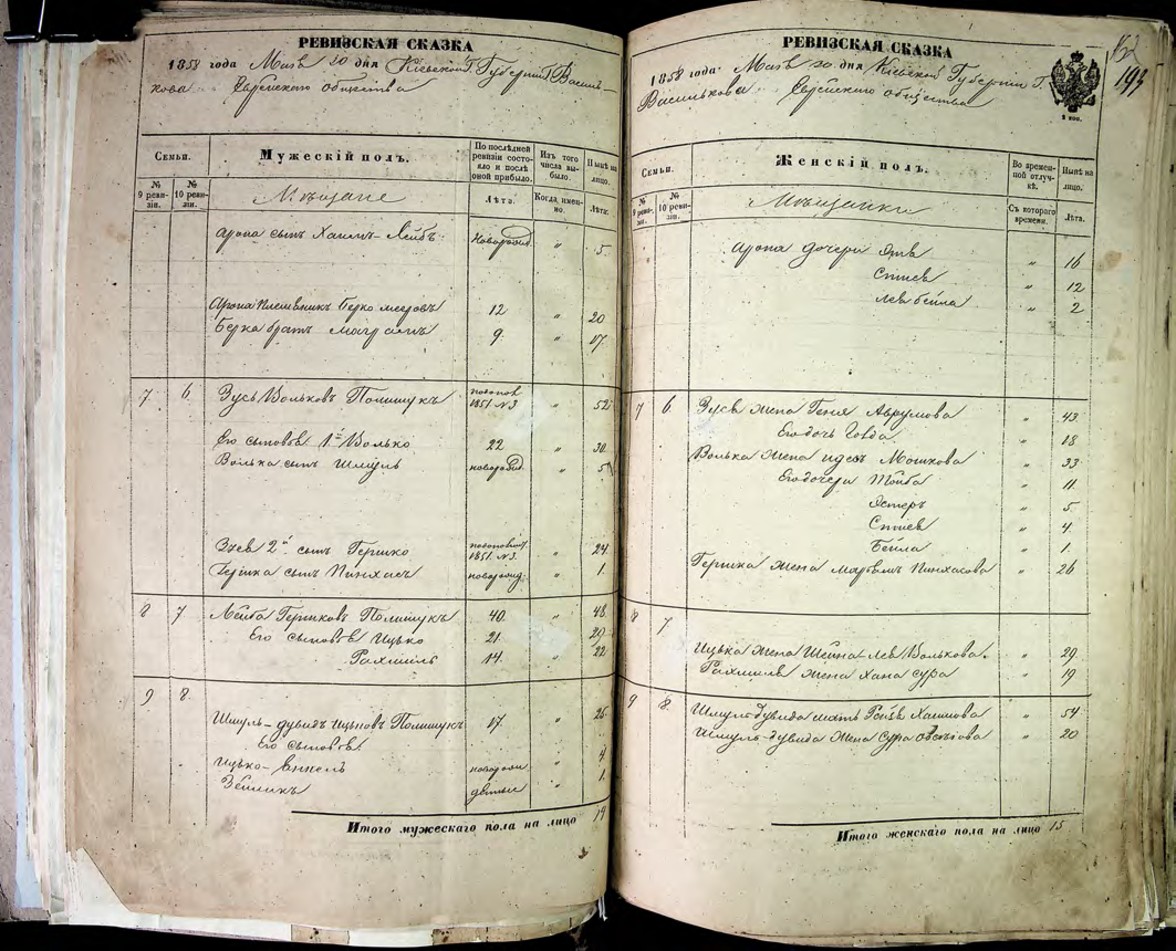 РЕВИЗСКАЯ СКАЗКА
1858 года Мая 20 дня Кіевской Губерніи Г. Василь-
кова Еврейскаго общества
Семьи.
Мужескій полъ.
По послѣдней ревизіи состояло и послѣ оной прибыло.
Изъ того числа выбыло.
Нынѣ на лицо.
№ 9 ревизіи.
№ 10 ревизіи.
Мѣщане
Лѣта.
Когда, именно.
Лѣта.
Арона сынъ Хаимъ-Лейбъ новорожд. " 5
Арона Племянникъ Берко Мееровъ 12 " 20
Берка братъ 9 " 17
7 6 Зусь Вольковъ Полищукъ 1851 №3 " 52
Его сыновья 1й Волько 22 " 30
Волька сынъ Шмуль новорожд. " 5
2й сынъ Гершко 1851 №3 " 24
Гершка сынъ Пинхасъ новорожд. " 1
8 7 Лейба Гершковъ Полищукъ 40 " 48
Его сыновья Ицько 21 29
Рахмиль 14 22
9 8
Шмуль-Дувидъ Ицьковъ Полищукъ 17 " 25
Его сыновья
Ицько- " 4
Зейликъ " 1
Итого мужескаго пола на лицо 14
РЕВИЗСКАЯ СКАЗКА
1858 года Мая 20 дня Кіевской Губерніи Г.
Василькова Еврейскаго общества
193
Семьи.
Женскій полъ.
Во временной отлучкѣ.
Нынѣ на лицо.
№ 9 ревизіи.
№ 10 ревизіи.
Мѣщанки
Съ котораго времени.
Лѣта.
Арона дочери " 16
" 12
бейла " 2
7 6 Зуся жена Геня Аврумова " 43
Его дочь Голда " 18
Волька жена Мошкова " 33
Его дочери Тойба " 11
Эстеръ " 5
" 4
Бейла " 1
Гершка жена Марьямъ Пинхасова " 26
8 7
Ицька жена Шейна- Волькова " 29
Рахмиля жена Хана Сура " 19
9 8 Шмуль-Дувида мать Рейзя Хаимова " 54
Шмуль-Дувида жена Сура " 20
Итого женскаго пола на лицо 15